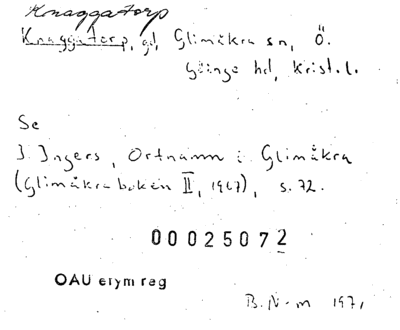 Knaggatorp
Knaggatorp, gd, Glimåkra sn, Ö.
Göinge hd, Krist. l.
Se
I. Ingers, Ortnamn i Glimåkra
(Glimåkraboken II, 1967), s. 72.
00025072
OAU etym reg
B. N-m 1971